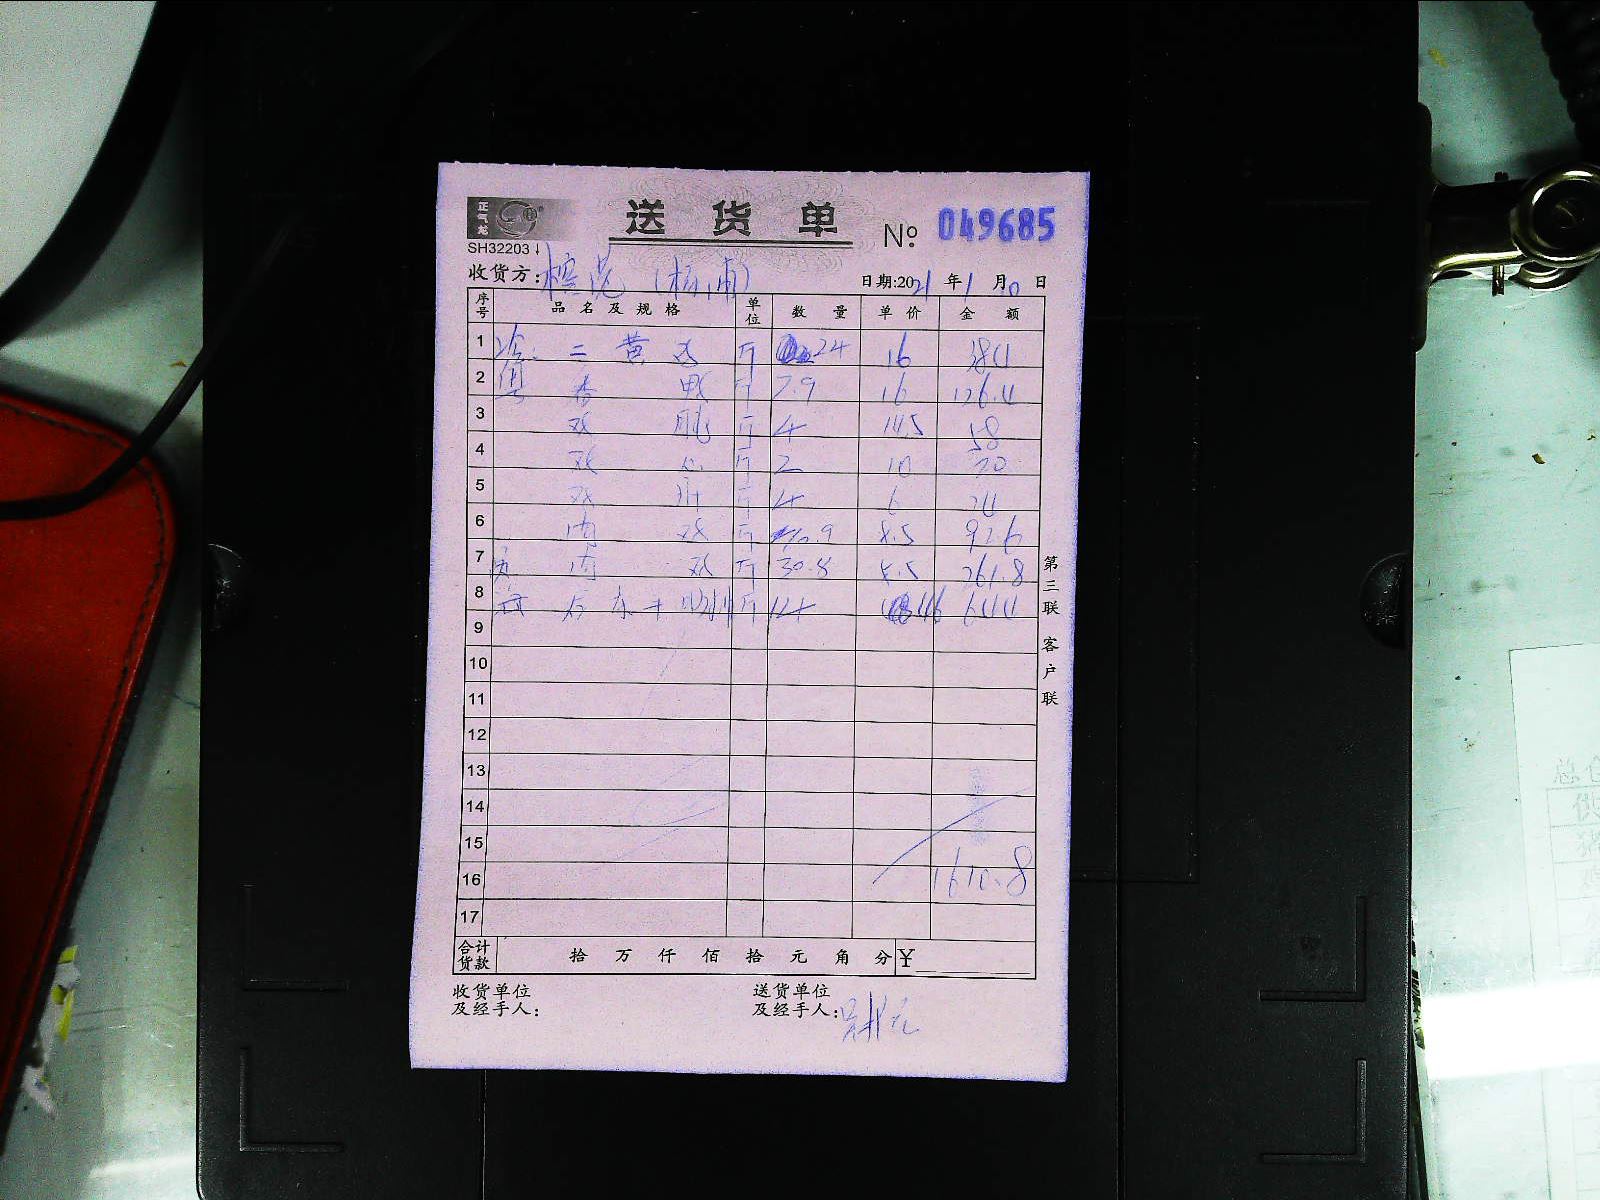 正气龙
送货单
№ 049685
SH32203
收货方: (杨浦)
日期:2021年1月10日
序号 品名及规格 单位 数量 单价 金额
1 三黄鸡 斤 24 16 384
2 香鸭 斤 7.9 16 126.4
3 鸡 斤 4 14.5 58
4 鸡心 斤 2 10 20
5 鸡肝 斤 4 6 24
6 肉鸡 斤 10.9 8.5 92.6
7 肉鸡 斤 30.8 8.5 261.8
8 斤 14 46 644
9
10
11
12
13
14
15
16 1610.8
17
合计货款 拾 万 仟 佰 拾 元 角 分 ¥
收货单位及经手人:
送货单位及经手人:
第三联 客户联